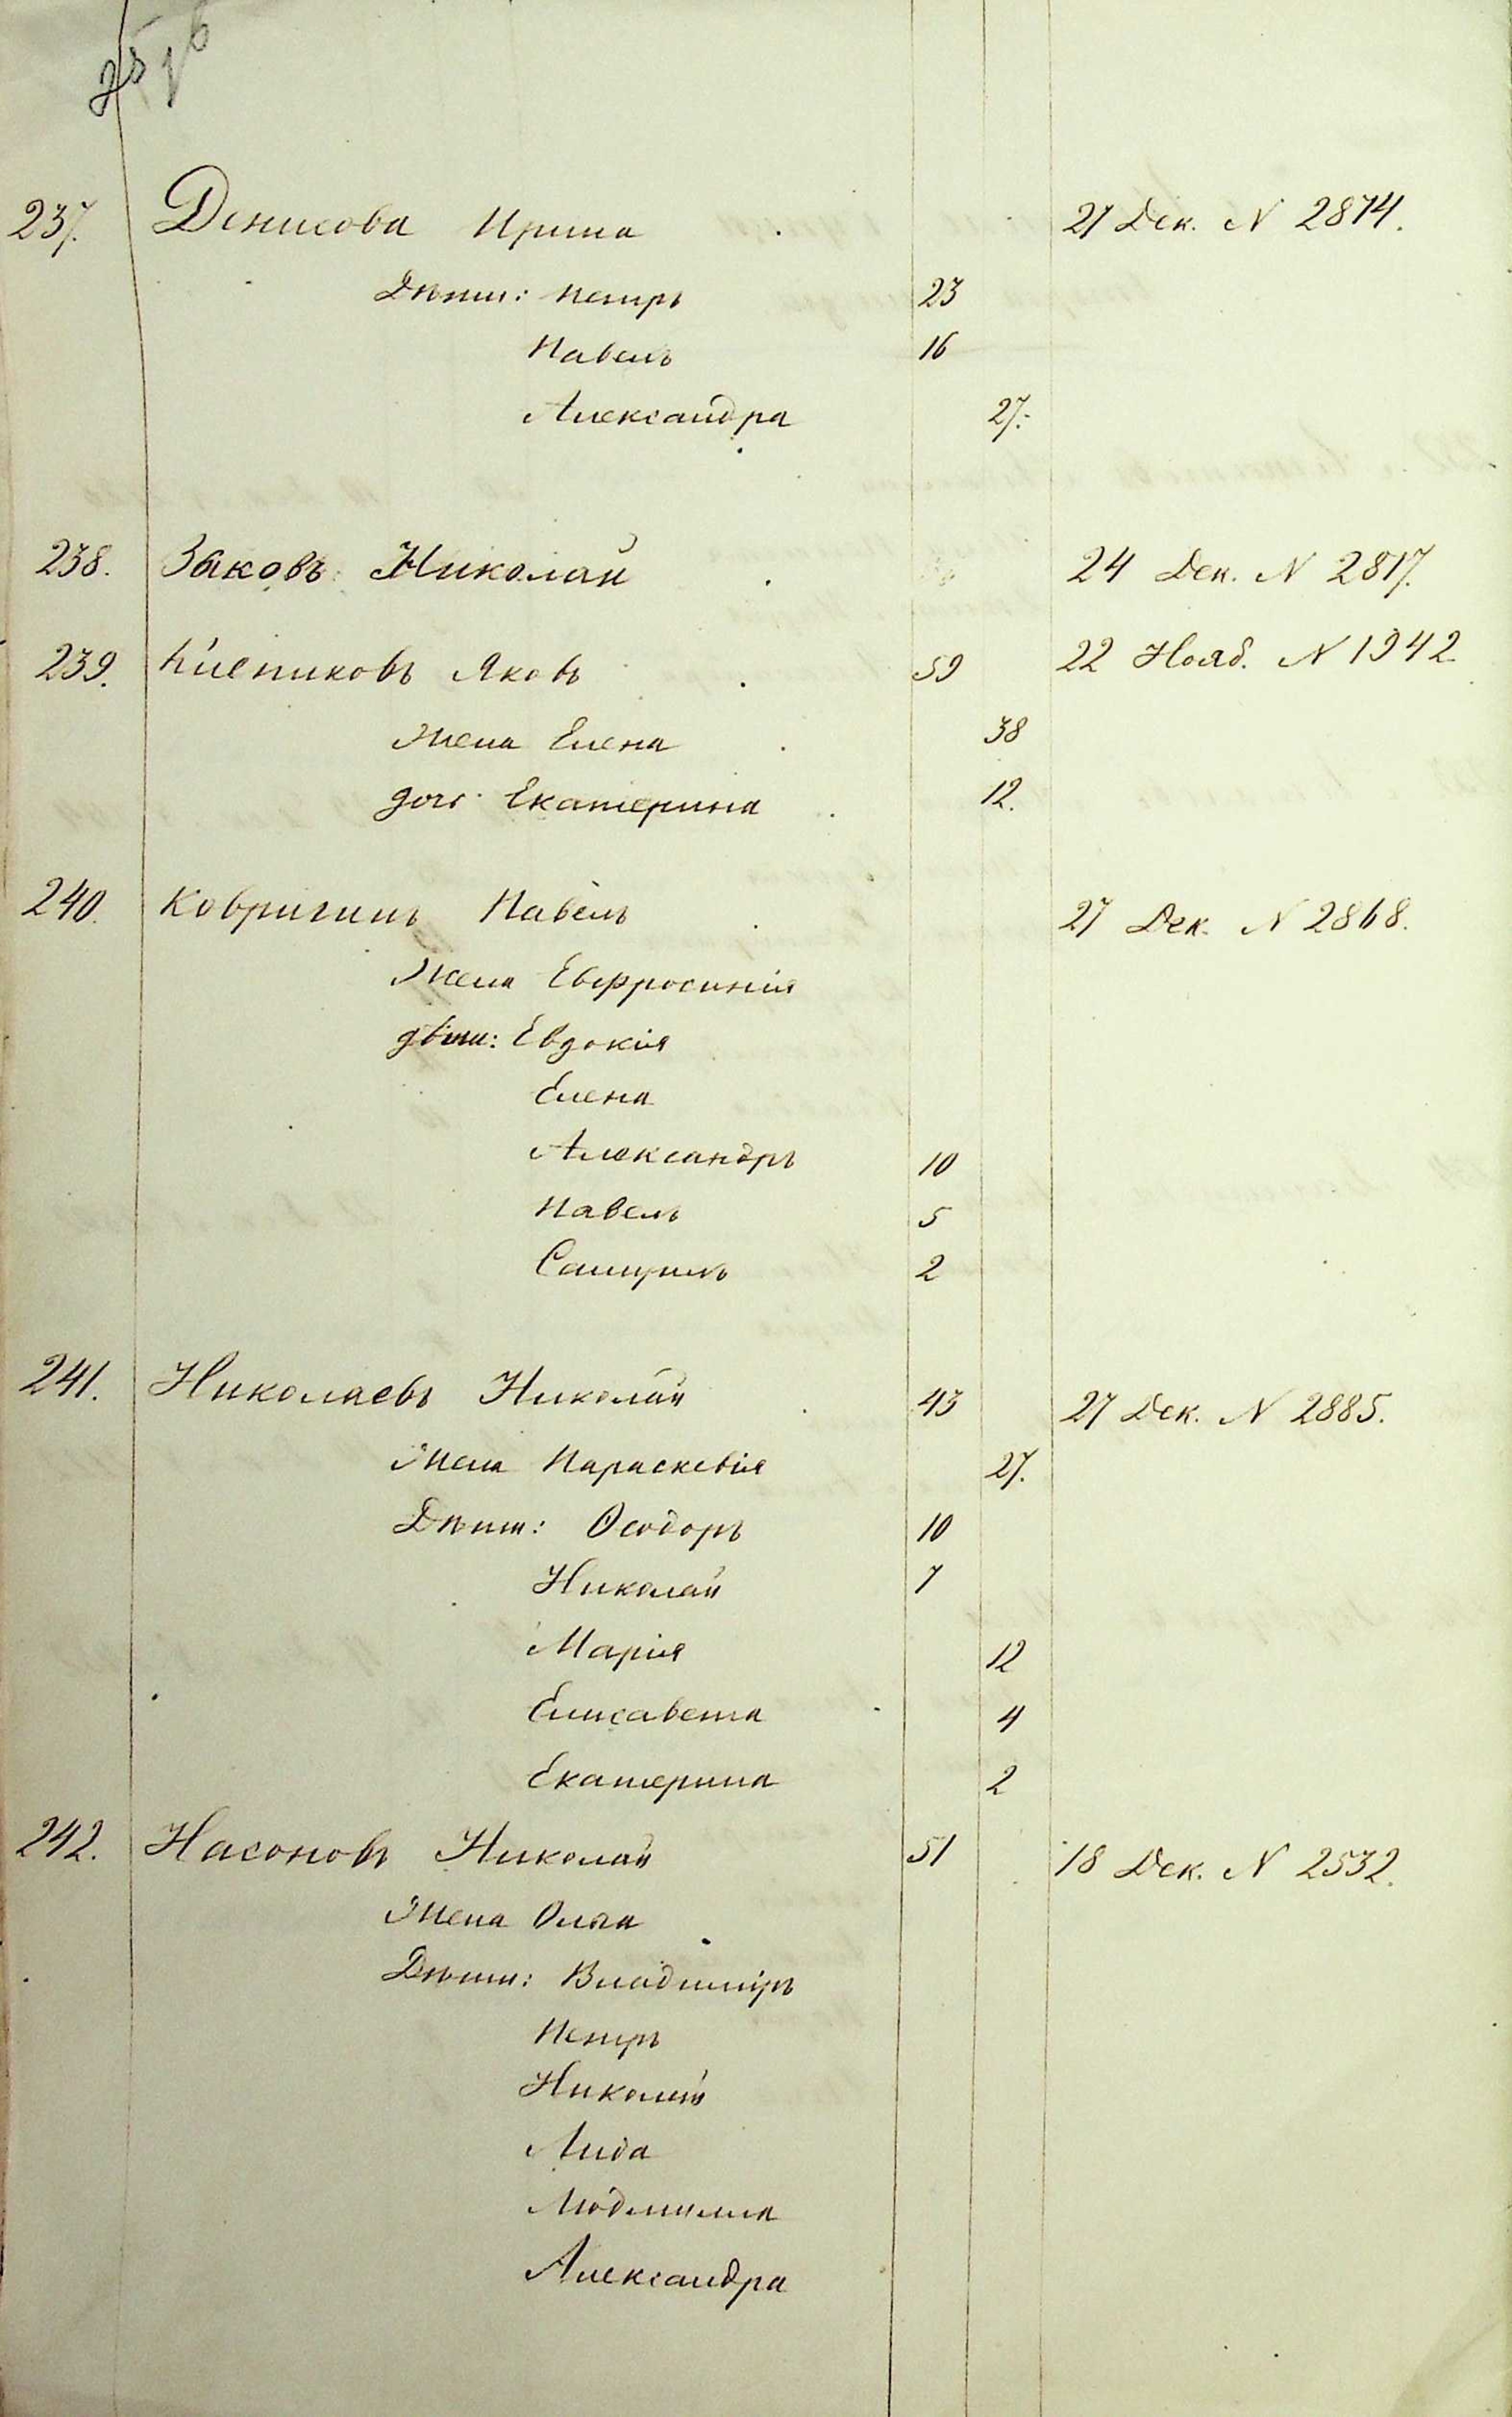 237. Денисова Ирина 27 Дек. N 2874.
Дѣти: Петръ 23
Павелъ 16
Александра 27.
238. Заковъ Николай 24 Дек. N 2817.
239. Яковъ 59 22 Нояб. N 1942
Жена Елена 38
дочь Екатерина 12.
240. Ковригинъ Павелъ 27 Дек. N 2868.
Жена Евфросинія
дѣти: Евдокія
Елена
Александръ 10
Павелъ 5
Самуилъ 2
241. Николаевъ Николай 43 27 Дек. N 2885.
Жена Параскевія 27.
Дѣти: Ѳеодоръ 10
Николай 7
Марія 12
Елисавета 4
Екатерина 2
242. Насоновъ Николай 51 18 Дек. N 2532.
Жена Ольга
Дѣти: Владиміръ
Петръ
Николай
Лида
Людмила
Александра